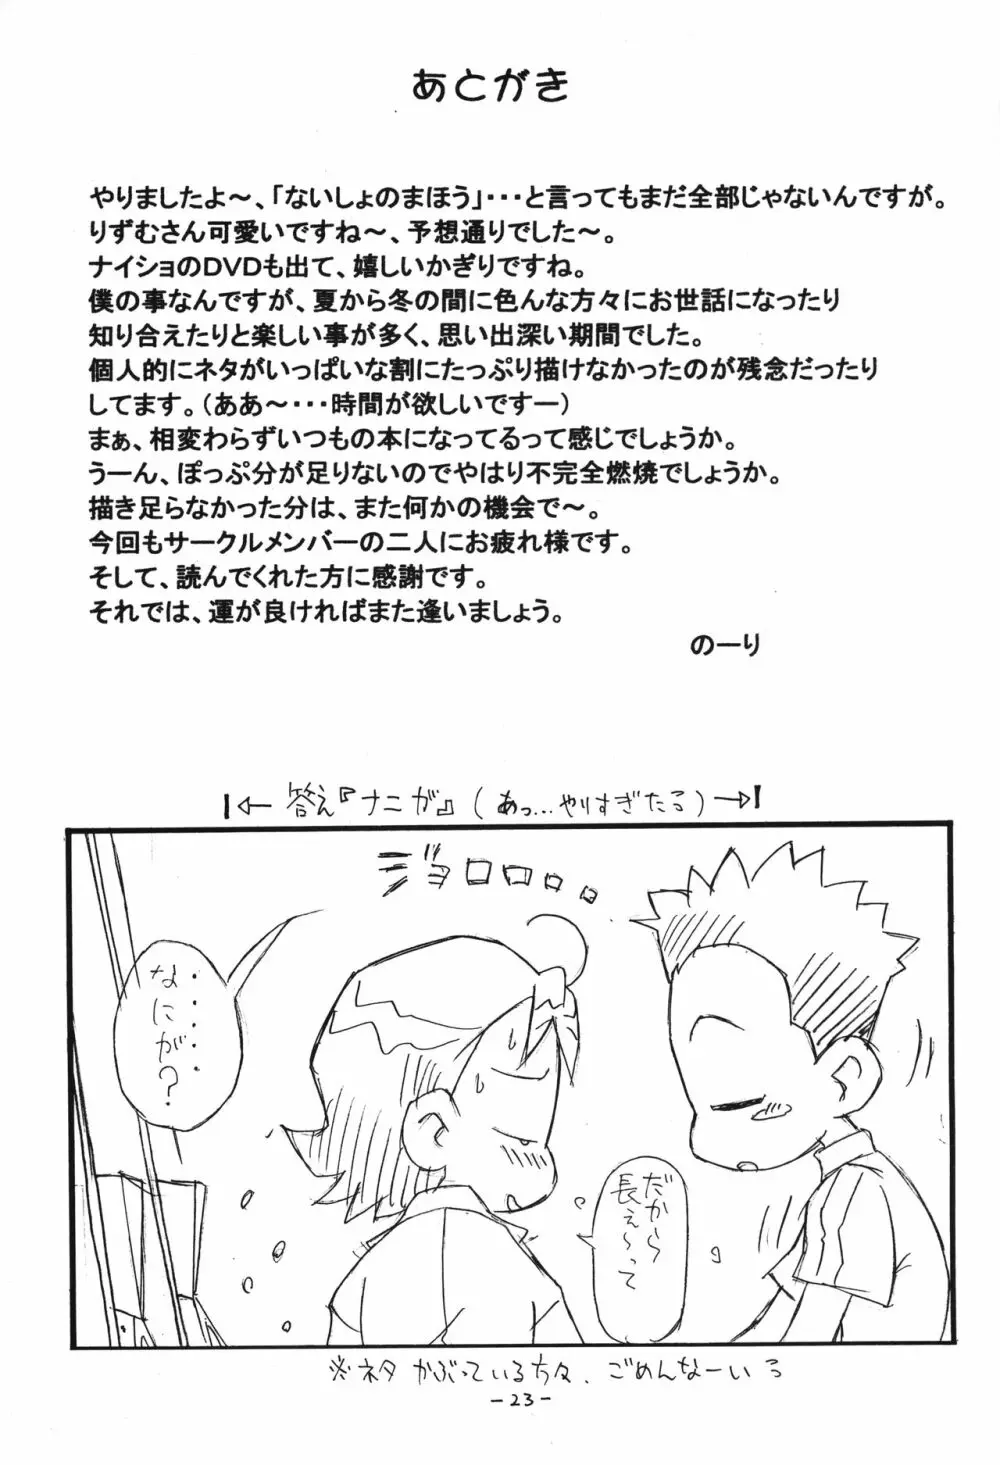 あとがき
やりましたよ〜、「ないしょのまほう」・・・と言ってもまだ全部じゃないんですが。
りずむさん可愛いですね〜、予想通りでした〜。
ナイショのDVDも出て、嬉しいかぎりですね。
僕の事なんですが、夏から冬の間に色んな方々にお世話になったり
知り合えたりと楽しい事が多く、思い出深い期間でした。
個人的にネタがいっぱいな割にたっぷり描けなかったのが残念だったり
してます。（ああ〜・・・時間が欲しいですー）
まぁ、相変わらずいつもの本になってるって感じでしょうか。
うーん、ぽっぷ分が足りないのでやはり不完全燃焼でしょうか。
描き足らなかった分は、また何かの機会で〜。
今回もサークルメンバーの二人にお疲れ様です。
そして、読んでくれた方に感謝です。
それでは、運が良ければまた逢いましょう。
のーり
←答え『ナニガ』(あっ...やりすぎたる)→
ジョロロロロ。
・・・・・
なにが?
だから
長ぇ〜って
※ネタかぶっている方々、ごめんなーいる
-23-